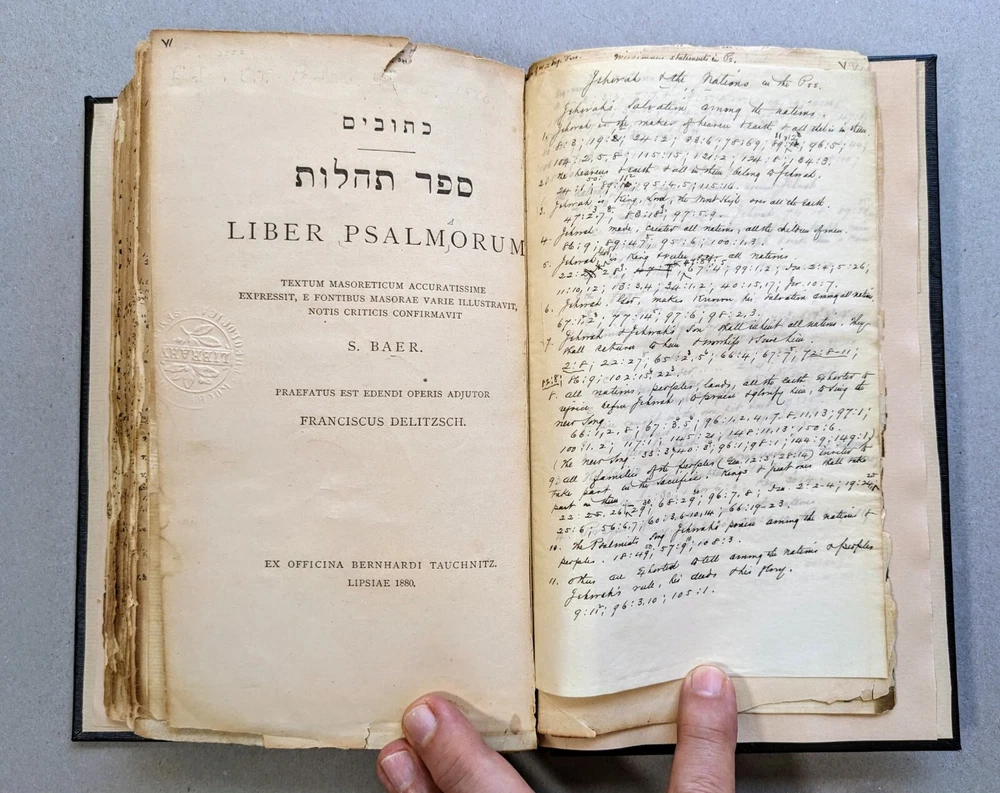 VI
כתובים
ספר תהלות
LIBER PSALMORUM
TEXTUM MASORETICUM ACCURATISSIME
EXPRESSIT, E FONTIBUS MASORAE VARIE ILLUSTRAVIT,
NOTIS CRITICIS CONFIRMAVIT
S. BAER.
PRAEFATUS EST EDENDI OPERIS ADJUTOR
FRANCISCUS DELITZSCH.
EX OFFICINA BERNHARDI TAUCHNITZ.
LIPSIAE 1880.
LIBRARY
Jehovah & the Nations in the Pss.
Jehovah's Salvation among the nations.
1. Jehovah is the maker of heaven & earth & all that is in them.
8:3; 19:1; 24:2; 33:6; 78:69; 96:5;
104:2,5,8; 115:15; 121:2; 124:8; 134:3.
2. The heavens & earth & all in them belong to Jehovah.
95:4,5; 115:16.
3. Jehovah is King, Lord, the Most High over all the Earth.
47:2,7; 83:18; 97:5,9.
4. Jehovah made, creates all nations, all the children of men.
86:9; 89:47; 95:6; 100:1,3.
5. Jehovah is King & ruler all nations.
67:4; 99:1,2;
11:10,12; 13:3,4; 34:1,2; 40:15,17; Jer. 10:7.
6. Jehovah, God, makes known his salvation among all nations
67:1,2; 77:14; 97:6; 98:2,3.
7. Jehovah & Jehovah's Son shall inherit all nations. They
shall return to him & worship & serve him.
2:8; 22:27; 65:2,5; 66:4; 67:7; 72:8-11;
82:8; 86:9; 102:15,22.
8. All nations, peoples, lands, all the earth exhorted to
rejoice before Jehovah, to praise & glorify him, to sing the
new song.
66:1,2,8; 67:3,5; 96:1,2,4,7,8,11,13; 97:1;
100:1,2; 117:1; 145:21; 148:11,13; 150:6.
(The new song 33:3; 40:3; 96:1; 98:1; 144:9; 149:1)
9. All families of the peoples (Gen. 12:3; 28:14) invited to
take part in the sacrifice. Kings & great ones shall take
part in them
22:25,26,29; 68:29; 96:7,8; Isa. 2:2-4; 19:24
25:6; 56:6,7; 60:3,6-10,14; 66:19-23.
10. The Psalmists sing Jehovah's praise among the nations &
peoples. 18:49; 57:9; 108:3.
11. Others are exhorted to tell among the nations & peoples
Jehovah's rule, his deeds & his glory.
9:11; 96:3,10; 105:1.